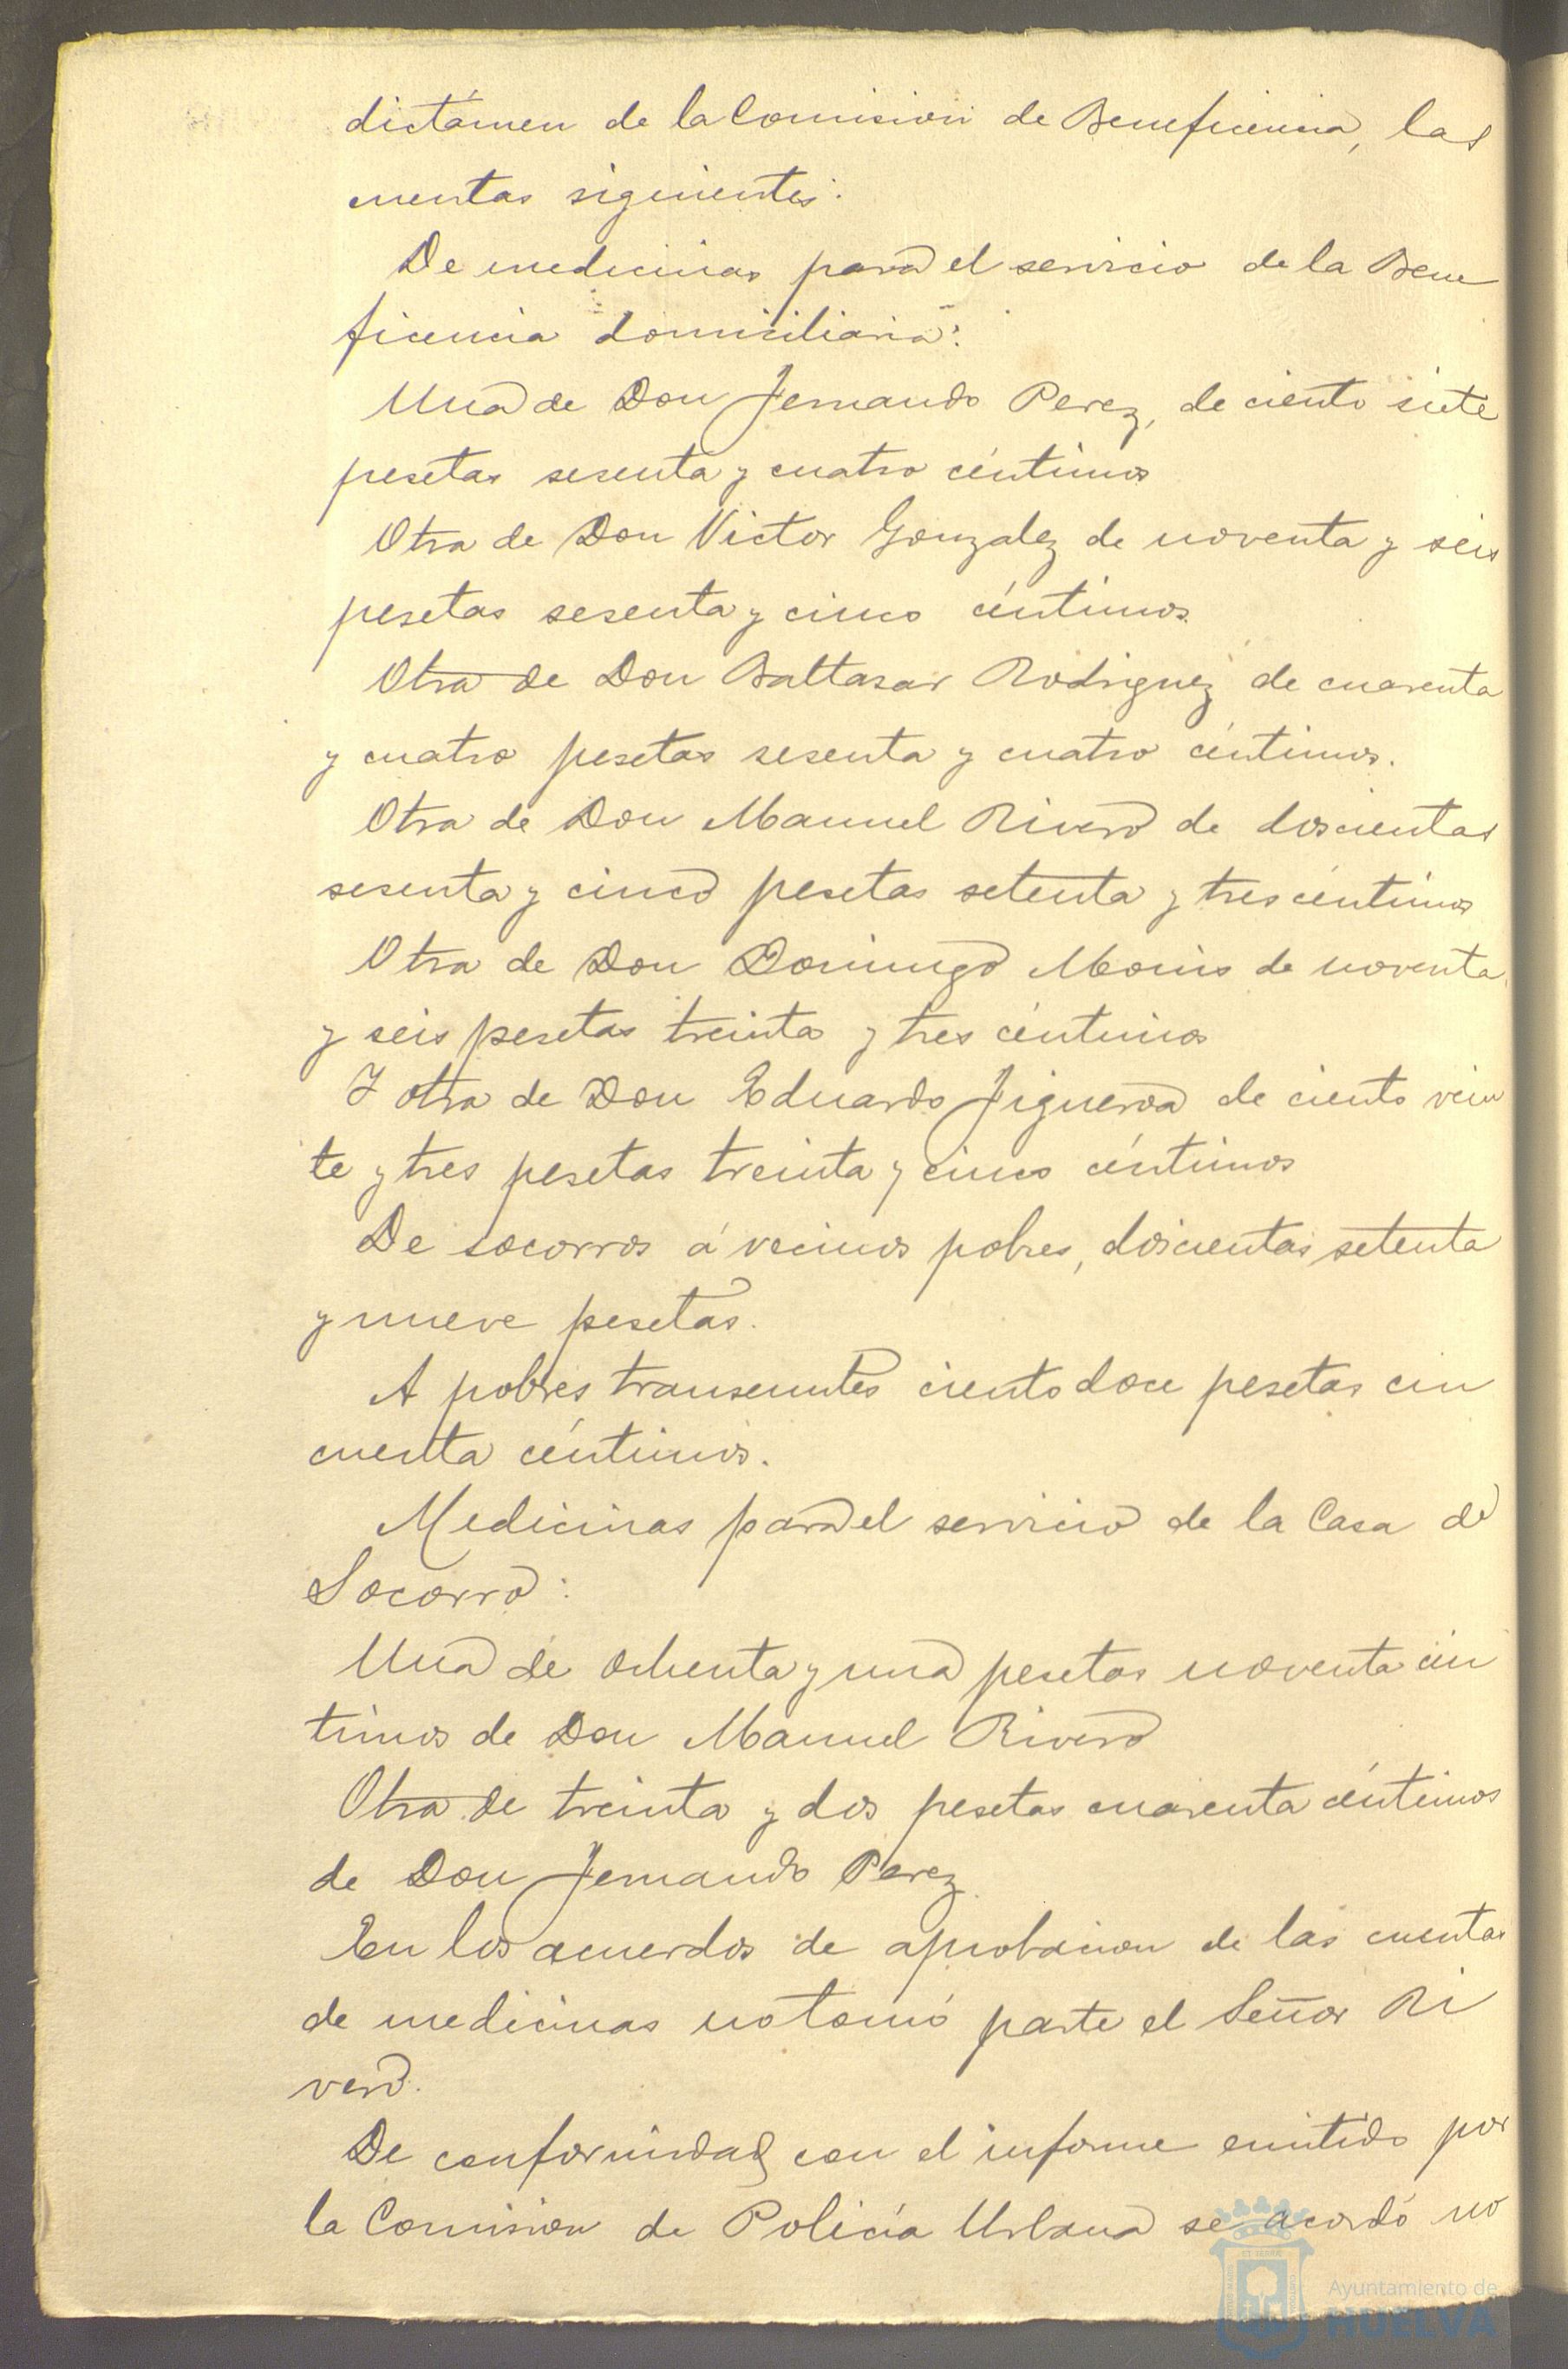 dictámen de la Comision de Beneficencia, las
cuentas siguientes:
De medicinas para el servicio de la Bene
ficencia domiciliaria:
Una de Don Fernando Perez, de ciento siete
pesetas sesenta y cuatro céntimos
Otra de Don Victor Gonzalez de noventa y seis
pesetas sesenta y cinco céntimos.
Otra de Don Baltasar Rodriguez de cuarenta
y cuatro pesetas sesenta y cuatro céntimos.
Otra de Don Manuel Rivero de doscientas
sesenta y cinco pesetas setenta y tres céntimos
Otra de Don Domingo Monis de noventa
y seis pesetas treinta y tres céntimos
Y otra de Don Eduardo Figueroa de ciento vein
te y tres pesetas treinta y cinco céntimos
De socorros á vecinos pobres, doscientas setenta
y nueve pesetas.
A pobres transeuntes ciento doce pesetas cin
cuenta céntimos.
Medicinas para el servicio de la Casa de
Socorro:
Una de ochenta y una pesetas noventa cén
timos de Don Manuel Rivero
Otra de treinta y dos pesetas cuarenta céntimos
de Don Fernando Perez
En los acuerdos de aprobacion de las cuentas
de medicinas no tomó parte el Señor Ri
vero.
De conformidad con el informe emitido por
la Comision de Policía Urbana se acordó no
Ayuntamiento de
HUELVA